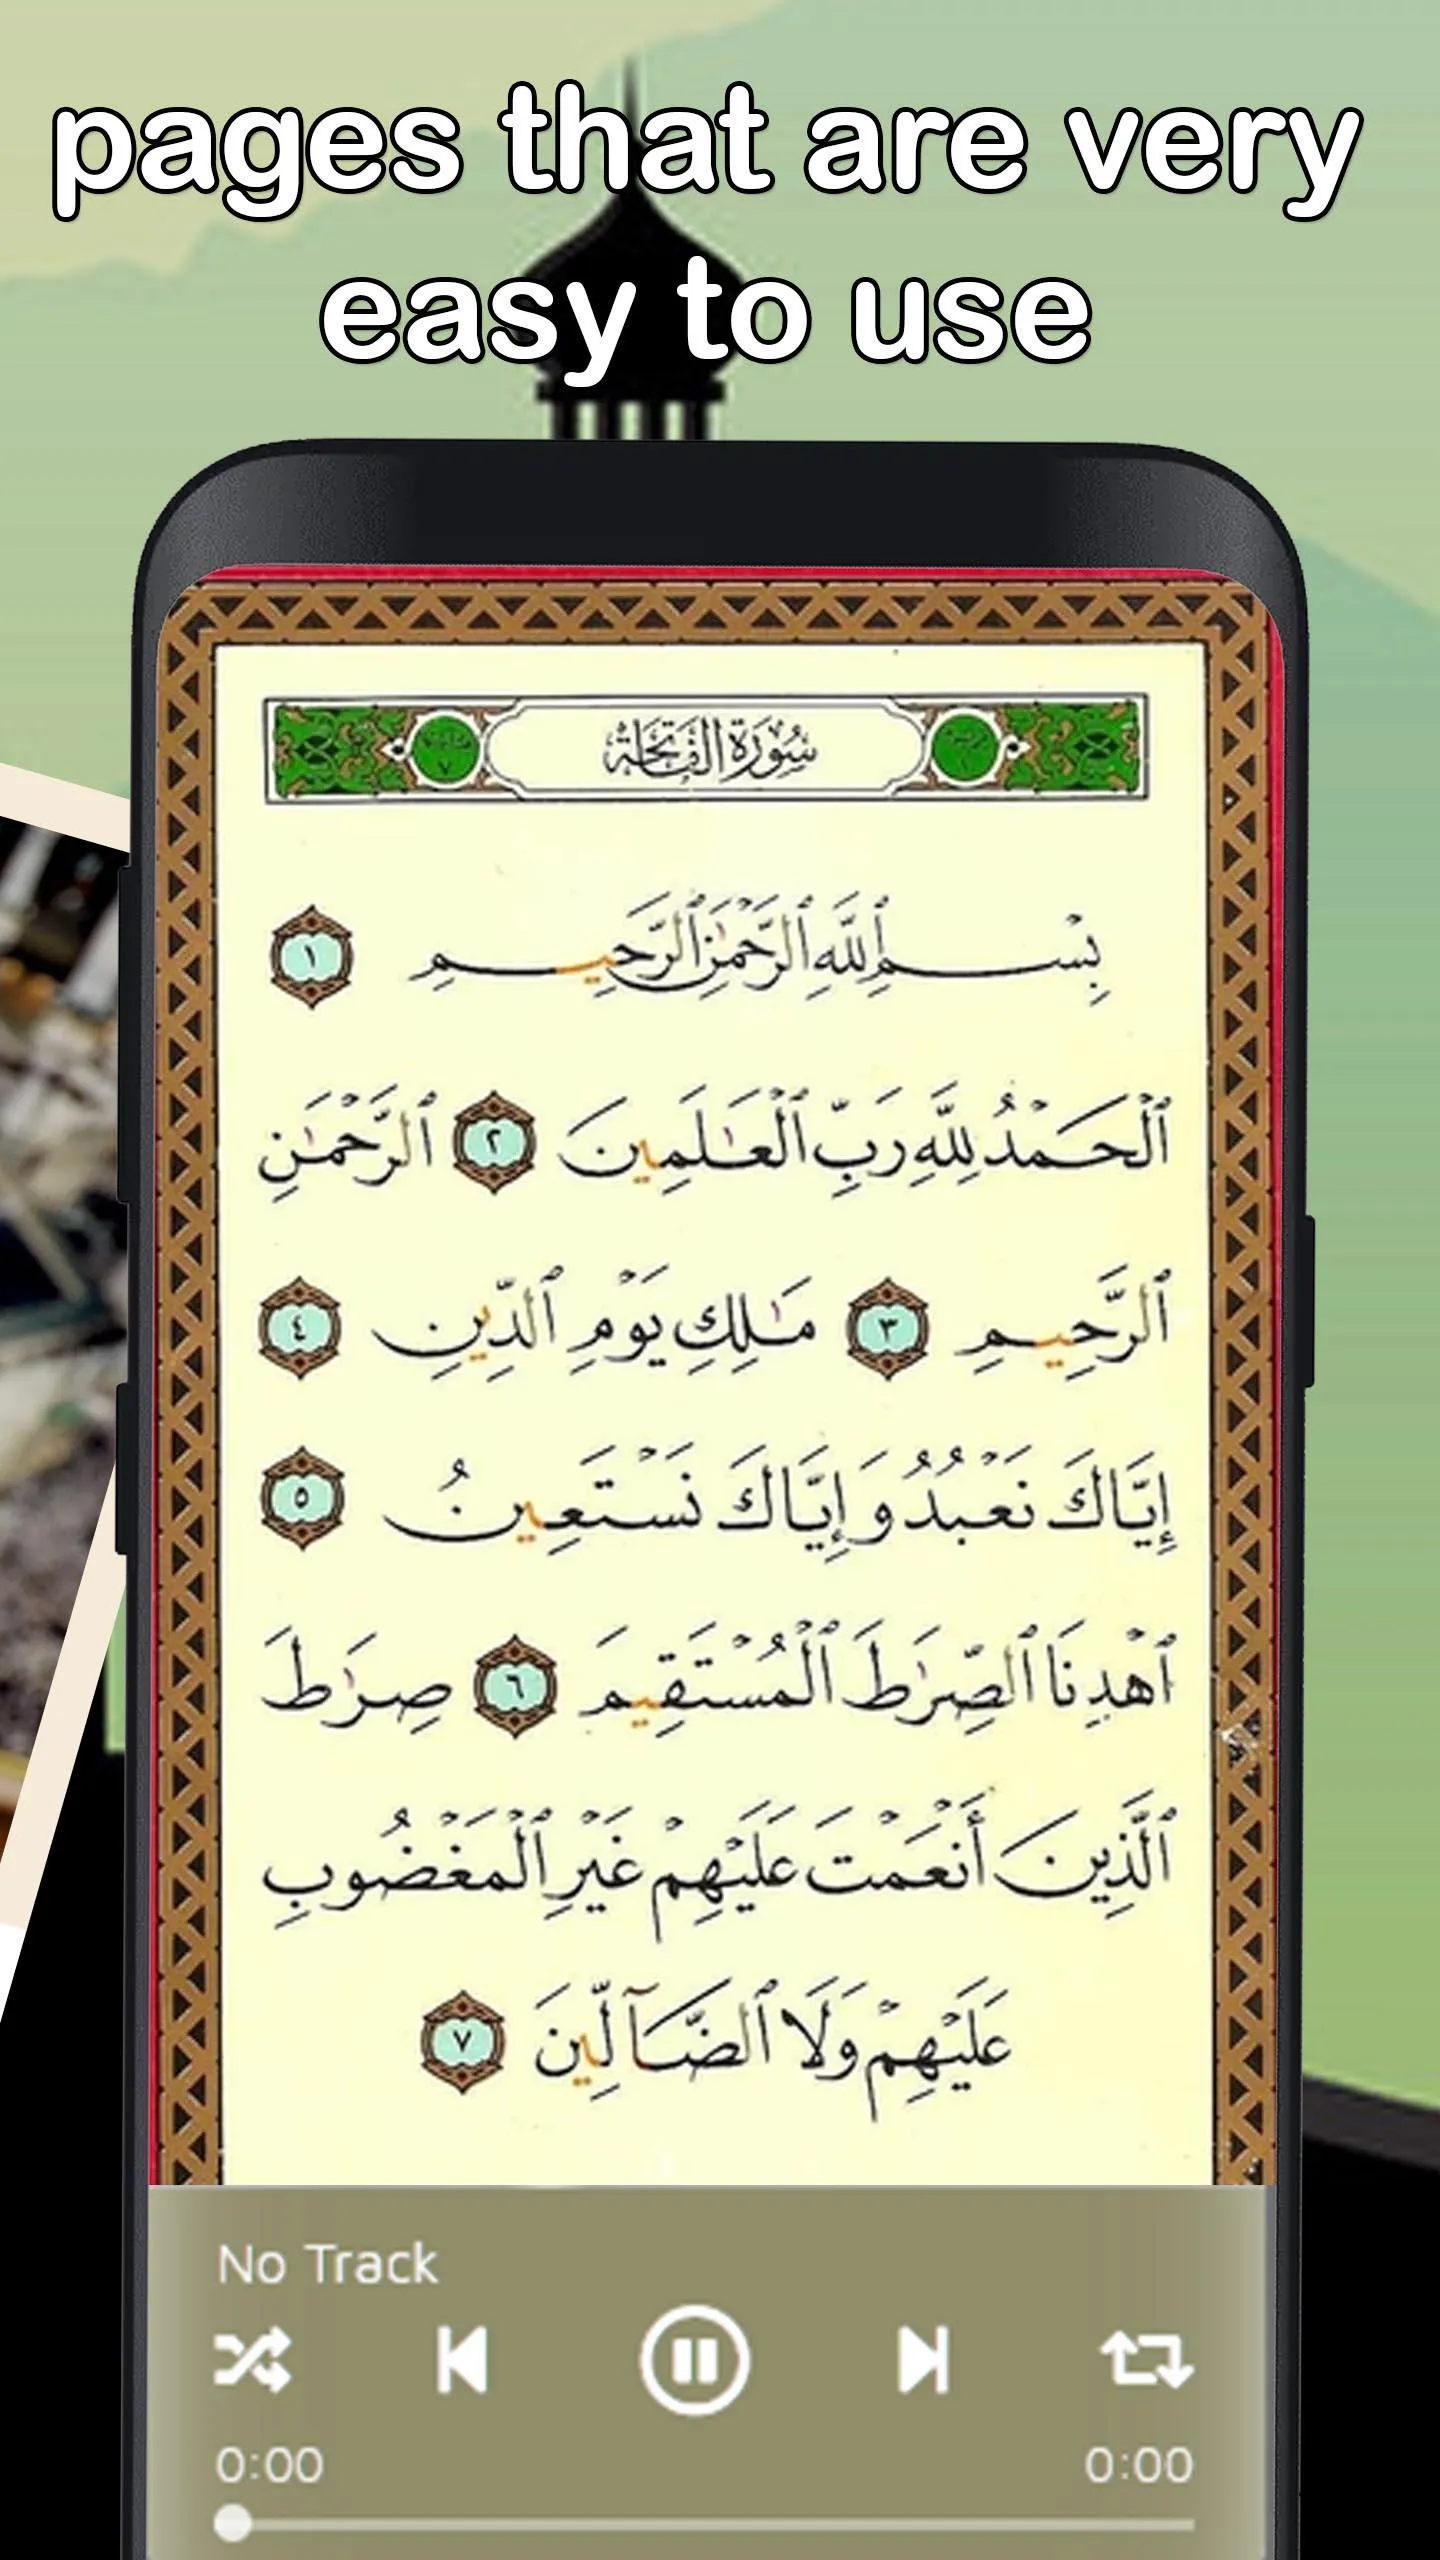 pages that are very
easy to use
سُورَةُ الفَاتِحَة
بِسْمِ ٱللَّهِ ٱلرَّحْمَٰنِ ٱلرَّحِيمِ ١
ٱلْحَمْدُ لِلَّهِ رَبِّ ٱلْعَٰلَمِينَ ٢ ٱلرَّحْمَٰنِ
ٱلرَّحِيمِ ٣ مَٰلِكِ يَوْمِ ٱلدِّينِ ٤
إِيَّاكَ نَعْبُدُ وَإِيَّاكَ نَسْتَعِينُ ٥
ٱهْدِنَا ٱلصِّرَٰطَ ٱلْمُسْتَقِيمَ ٦ صِرَٰطَ
ٱلَّذِينَ أَنْعَمْتَ عَلَيْهِمْ غَيْرِ ٱلْمَغْضُوبِ
عَلَيْهِمْ وَلَا ٱلضَّآلِّينَ ٧
No Track
0:00 0:00